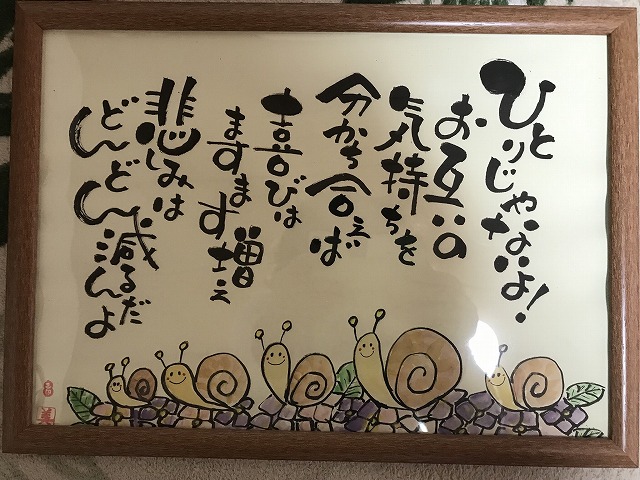 ひとりじゃないよ!
お互いの
気持ちを
分かち合えば
喜びは
ますます増え
悲しみは
どんどん減るだんよ
美